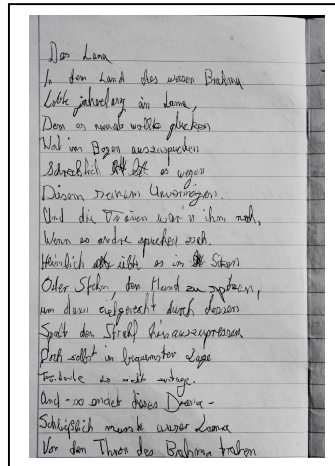 Das Lama
In dem Land des weisen Brahma
Lebte jahrelang ein Lama,
Dem es niemals wollte glücken
Wat im Bogen auszuspucken
Schrecklich litt es wegen
Diesem seinem Unvermögen.
Und die Tränen war'n ihm nah,
Wenn es andre spucken sah.
Heimlich übte es im Sitzen
Oder Stehn, den Mund zu spitzen,
um dann aufgerecht durch dessen
Spalt den Strahl hinauszupressen
Doch selbst in bequemster Lage
es nicht zutage.
Und - so endet dieses Drama -
Schließlich musste unser Lama
Vor den Thron des Brahma traben